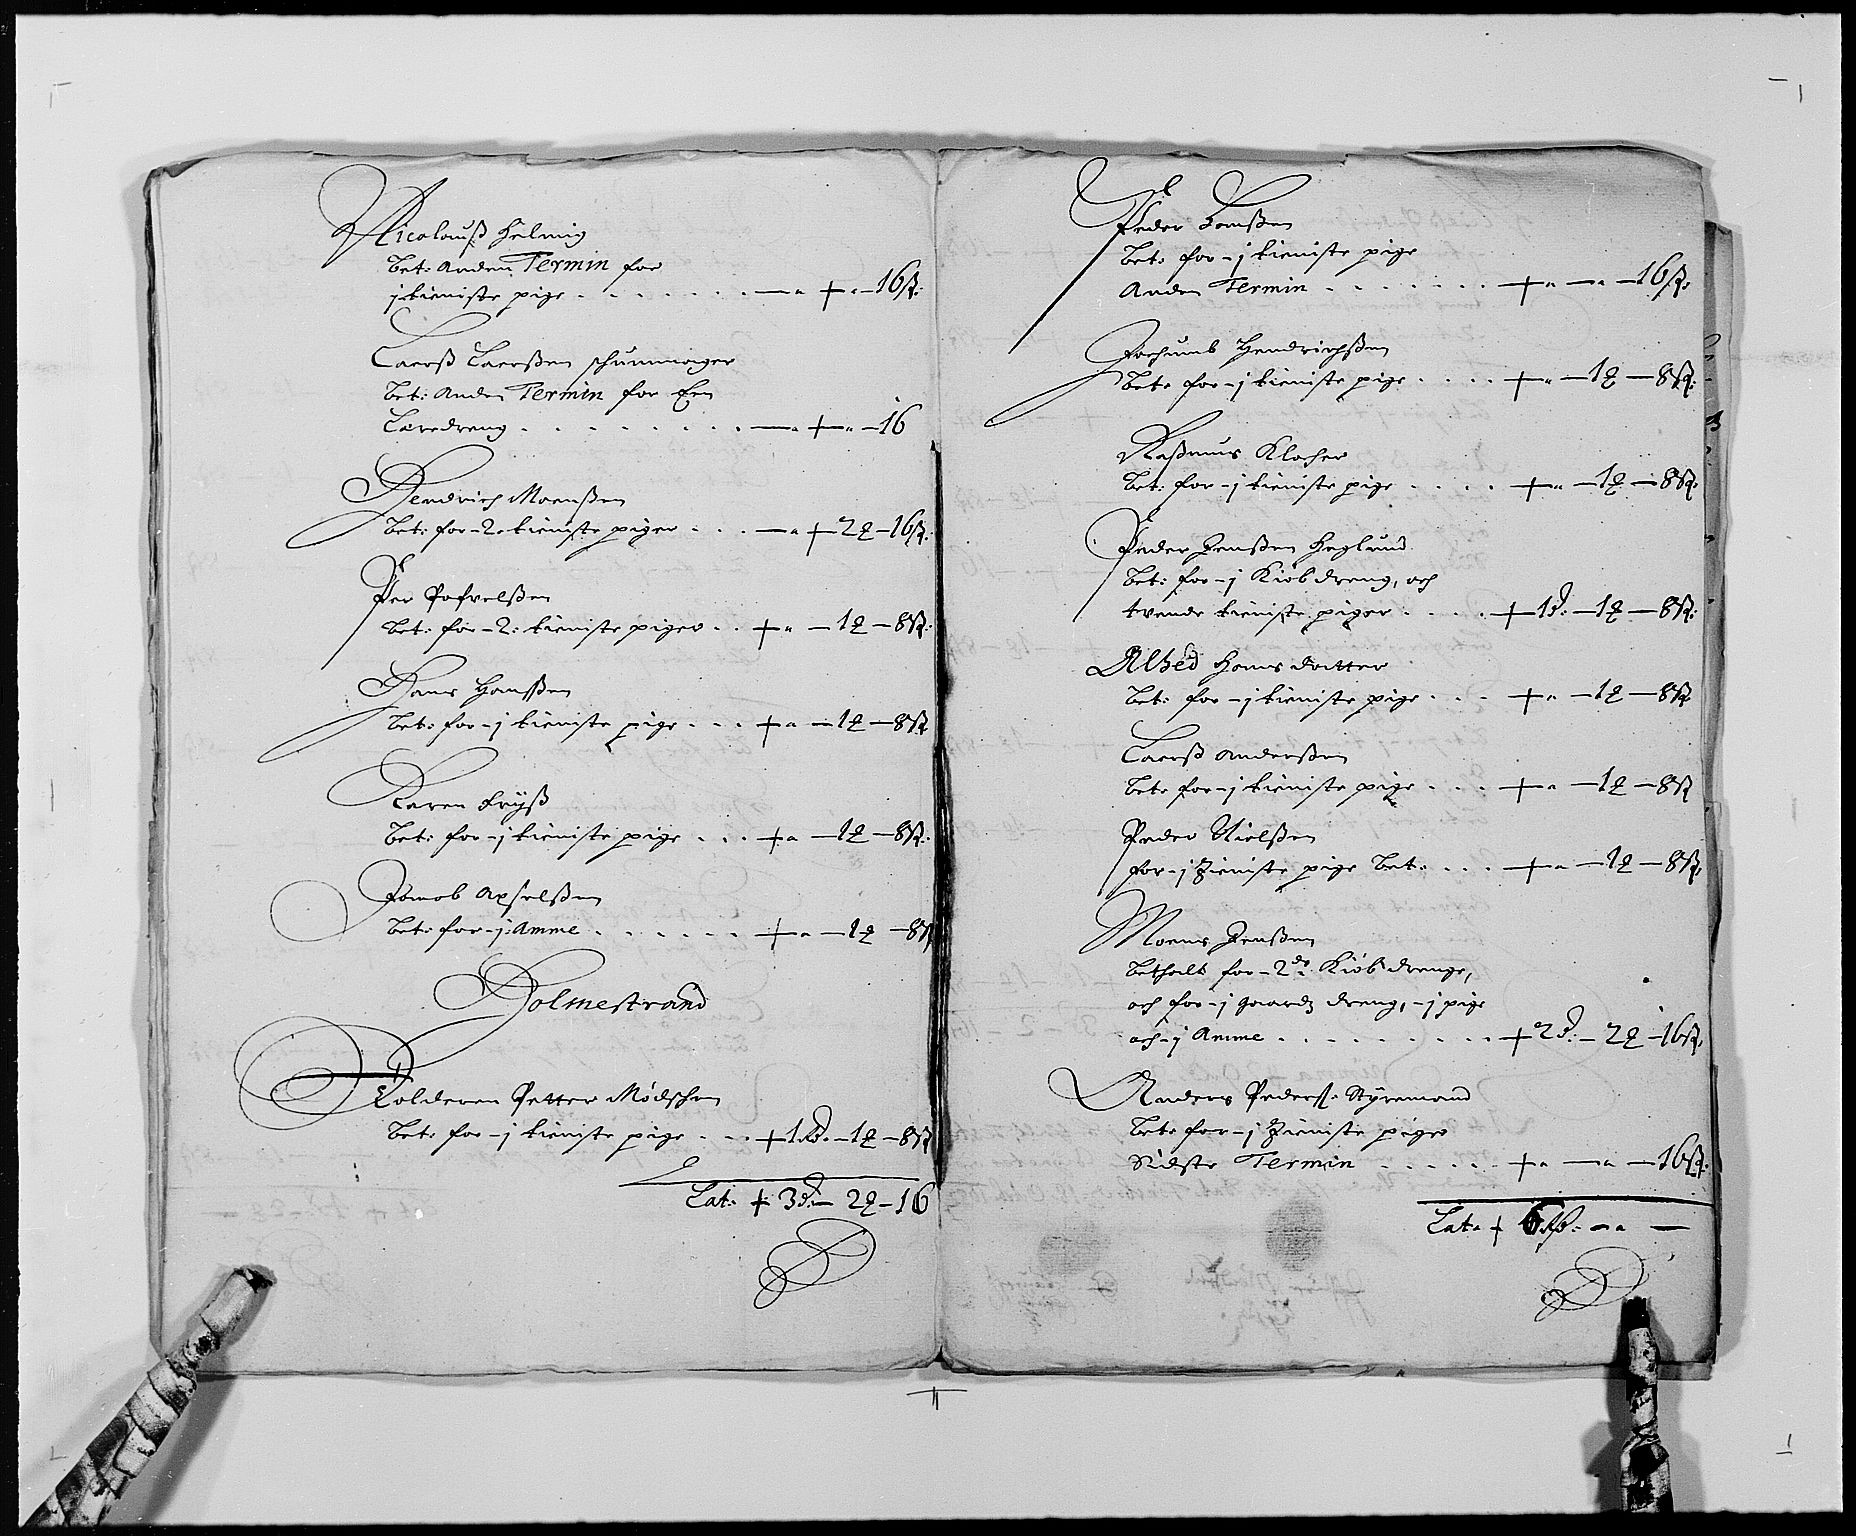 Nicolauß Helmig
bet: Anden Termin for
j tieniste pige . . . . . . . — " + " — 16 ß:
Laerß Laerßen schummager
bet: Anden Termin for Een
Læredreng . . . . . . . . — " + " — 16
Hendrich Moenßen
bet: for - 2 tieniste piger . . . — " + 2 ꝣ — 16 ß:
Per Pofvelßen
bet: for - 2: tieniste piger . . + " — 1 ꝣ — 8 ß:
Hans Hanßen
bet: for - j tieniste pige . . . + " — 1 ꝣ — 8 ß
Karen Frÿß
bet: for - j tieniste pige . . . + " — 1 ꝣ — 8 ß:
Jacob Axselßen
bet: for - j: Amme . . . . . . . + " — 1 ꝣ — 8 ß
Holmestrand
Tolderen Petter
bet: for - j tieniste pige . . . + 1 d: — 1 ꝣ — 8 ß
Lat: + 3 d: — 2 ꝣ — 16
Peder
bet: for - j tieniste pige
Anden Termin . . . . . . . + " — " — 16 ß:
Jochumb Hendrichßen
bet: for - j tieniste pige . . . . + " — 1 ꝣ — 8 ß:
Raßmus Klocher
bet: for - j tieniste pige . . . . + " — 1 ꝣ — 8 ß:
Peder Jenßen Heglund
bet: for - j Kiøbdreng, och
tvende tieniste piger . . . . + 1 d: — 1 ꝣ — 8 ß:
Alhed Hans datter
bet: for - j tieniste pige . . . + " — 1 ꝣ — 8 ß
Laerß Anderßen
bet: for - j tieniste pige . . . + " — 1 ꝣ — 8 ß
Peder Nielßen
for - j tieniste pige bet: . . . + " — 1 ꝣ — 8 ß:
Moens Jenßen
bethalt for - 2de Kiøbdrenge,
och for - j gaardz dreng, - j pige
och - j Amme . . . . . . . . . + 2 d: — 2 ꝣ — 16 ß:
Anders Pederß: Styremand
bet: for - j tieniste piger
Sidste Termin . . . . . . + " — " — 16 ß:
Lat: + 6 d: — " —